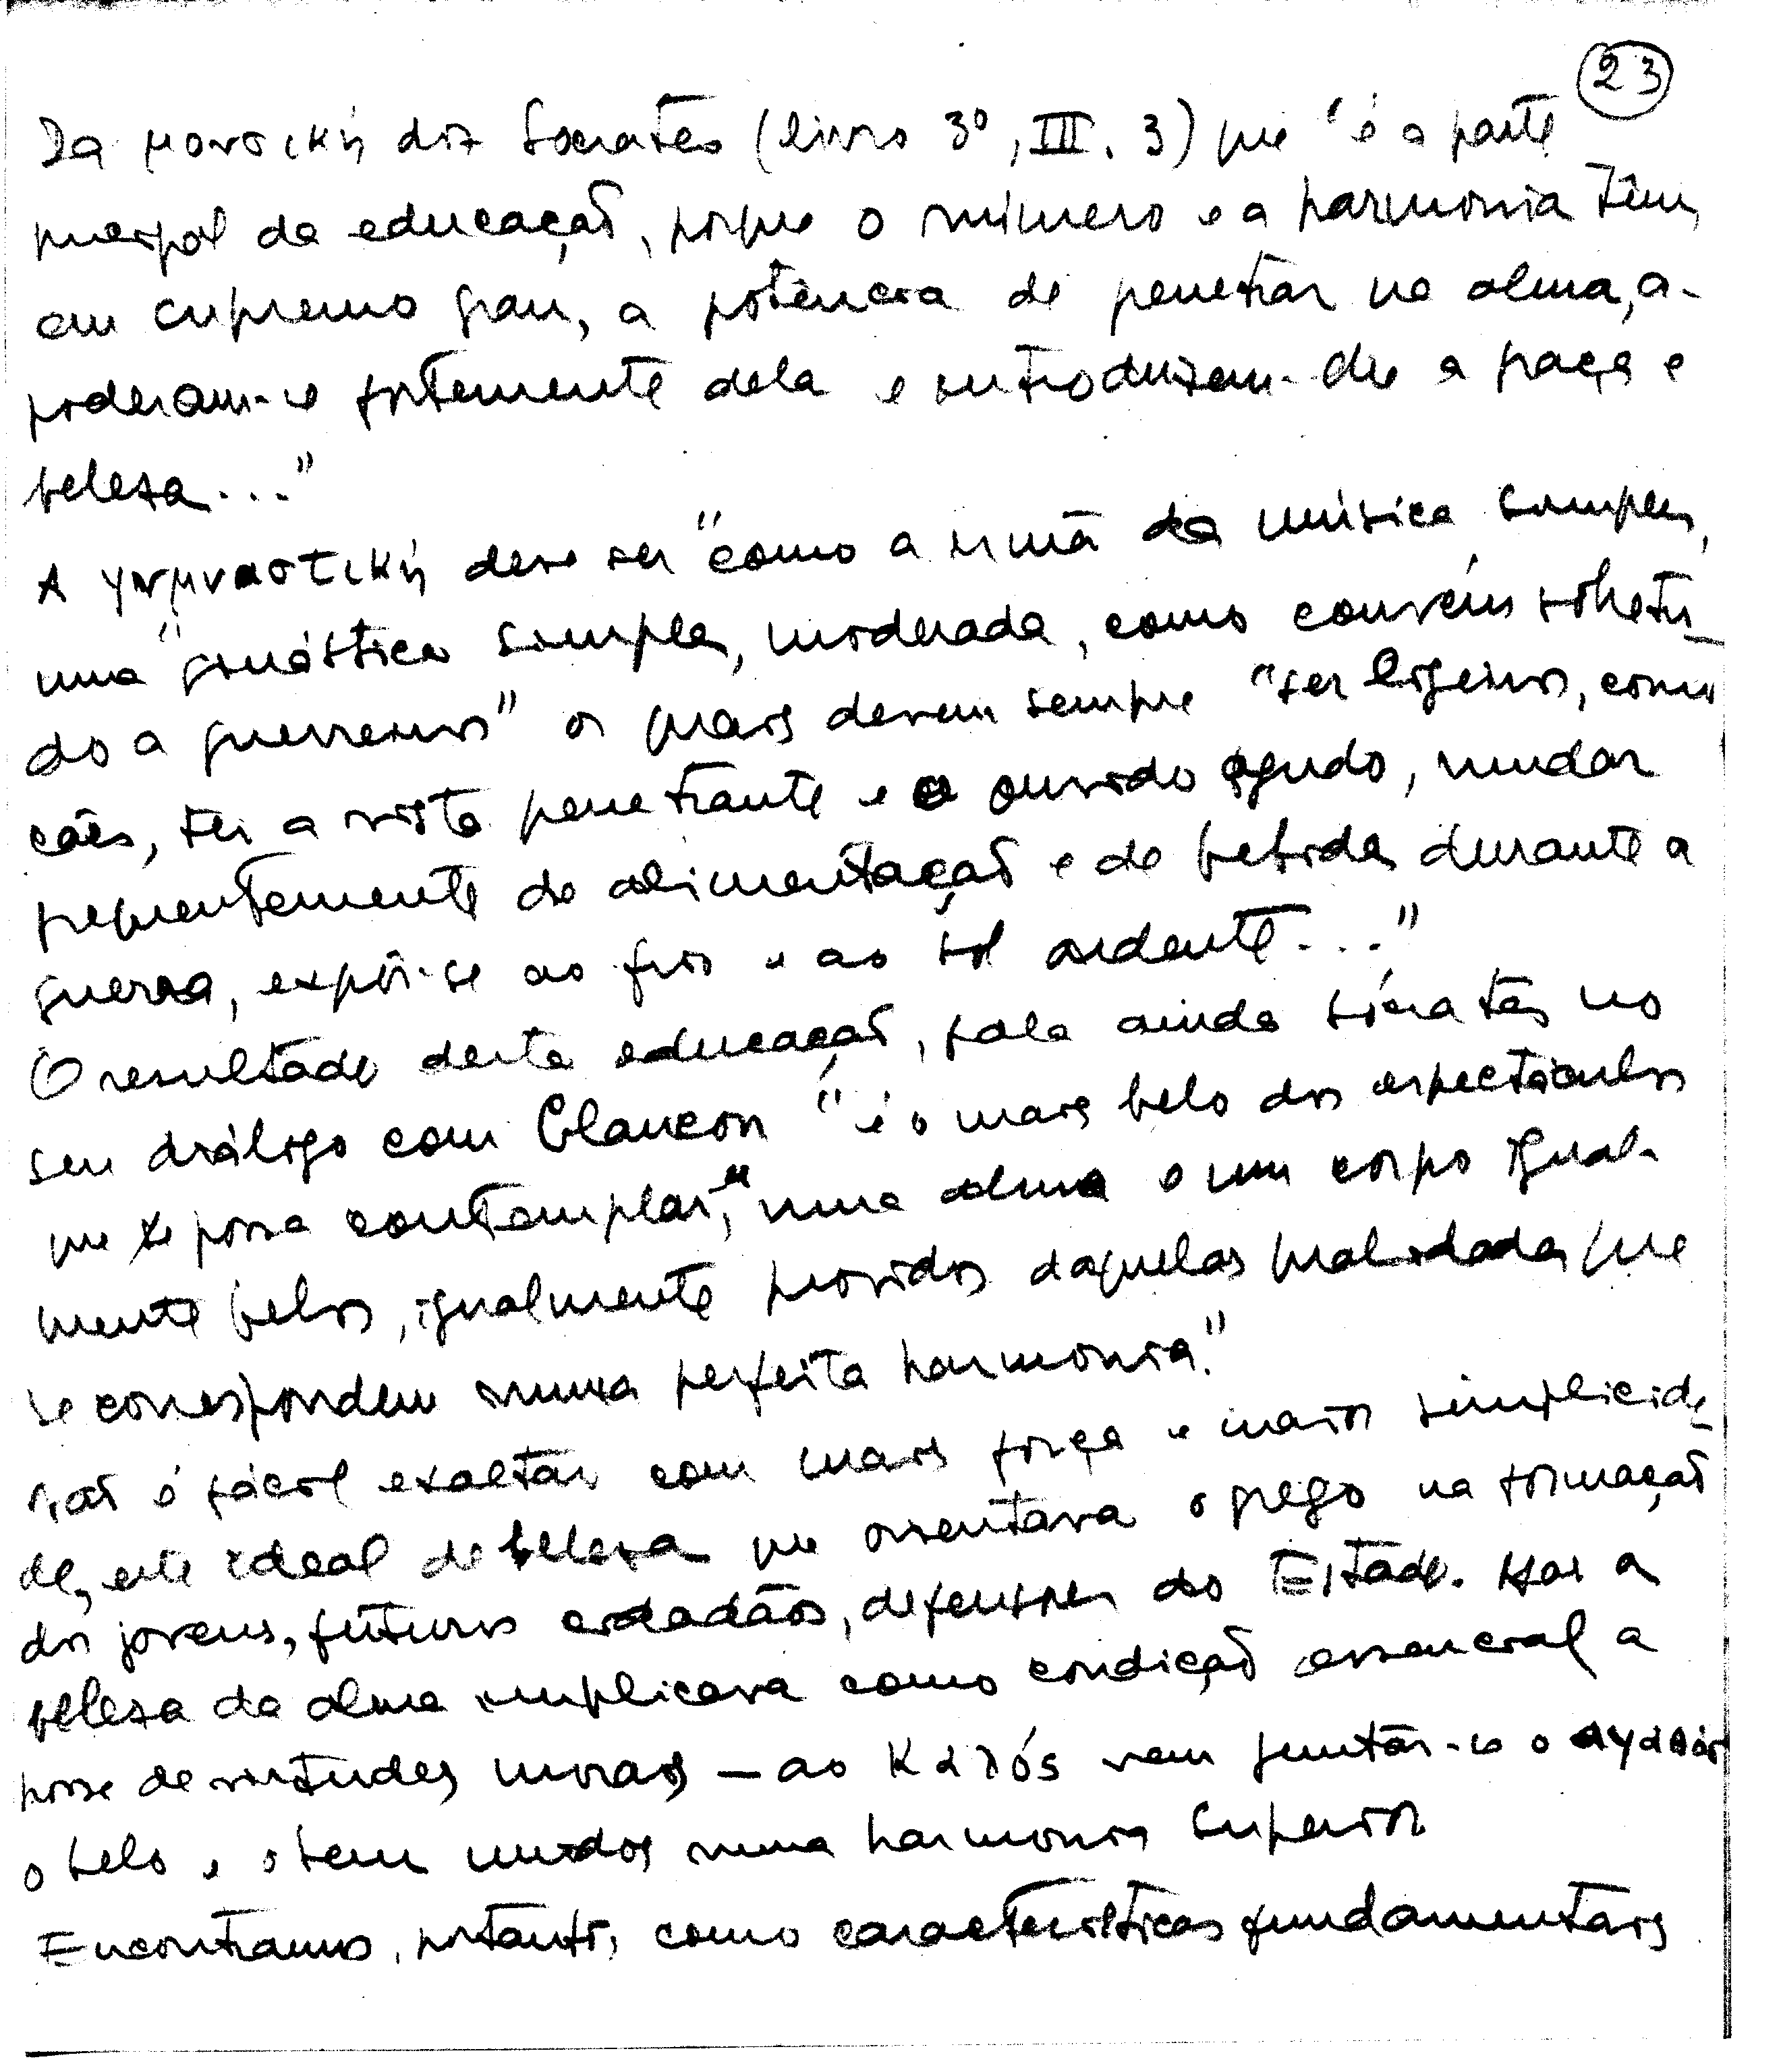 23
Da μουσική diz Socrates (livro 3º, III. 3) que "é a parte
principal da educação, porque o número e a harmonia têm,
em supremo grau, a potência de penetrar na alma, a-
poderam-se fortemente dela e introduzem-lhe a graça e
beleza..."
A γυμναστική deve ser "como a irmã da música simples,
uma "ginástica simples, moderada, como convém sobretu-
do a guerreiros" os quais devem sempre "ser ligeiros, como
cães, ter a vista penetrante e o ouvido agudo, mudar
frequentemente de alimentação e de bebidas durante a
guerra, expôr-se ao frio e ao sol ardente..."
O resultado desta educação, fala ainda Sócrates no
seu diálogo com Glaucon "é o mais belo dos espectáculos
que se possa contemplar," "uma alma e um corpo igual-
mente belos, igualmente providos daquelas qualidades que
se correspondem numa perfeita harmonia."
Não é fácil exaltar com mais força e maior simplicida-
de, este ideal de beleza que orientava o grego na formação
dos jovens, futuros cidadãos, defensores do Estado. Mas a
beleza da alma implicava como condição essencial a
posse de virtudes morais — ao καλός vem juntar-se o αγαθός
o belo e o bem unidos numa harmonia superior
Encontramos, portanto, como características fundamentais